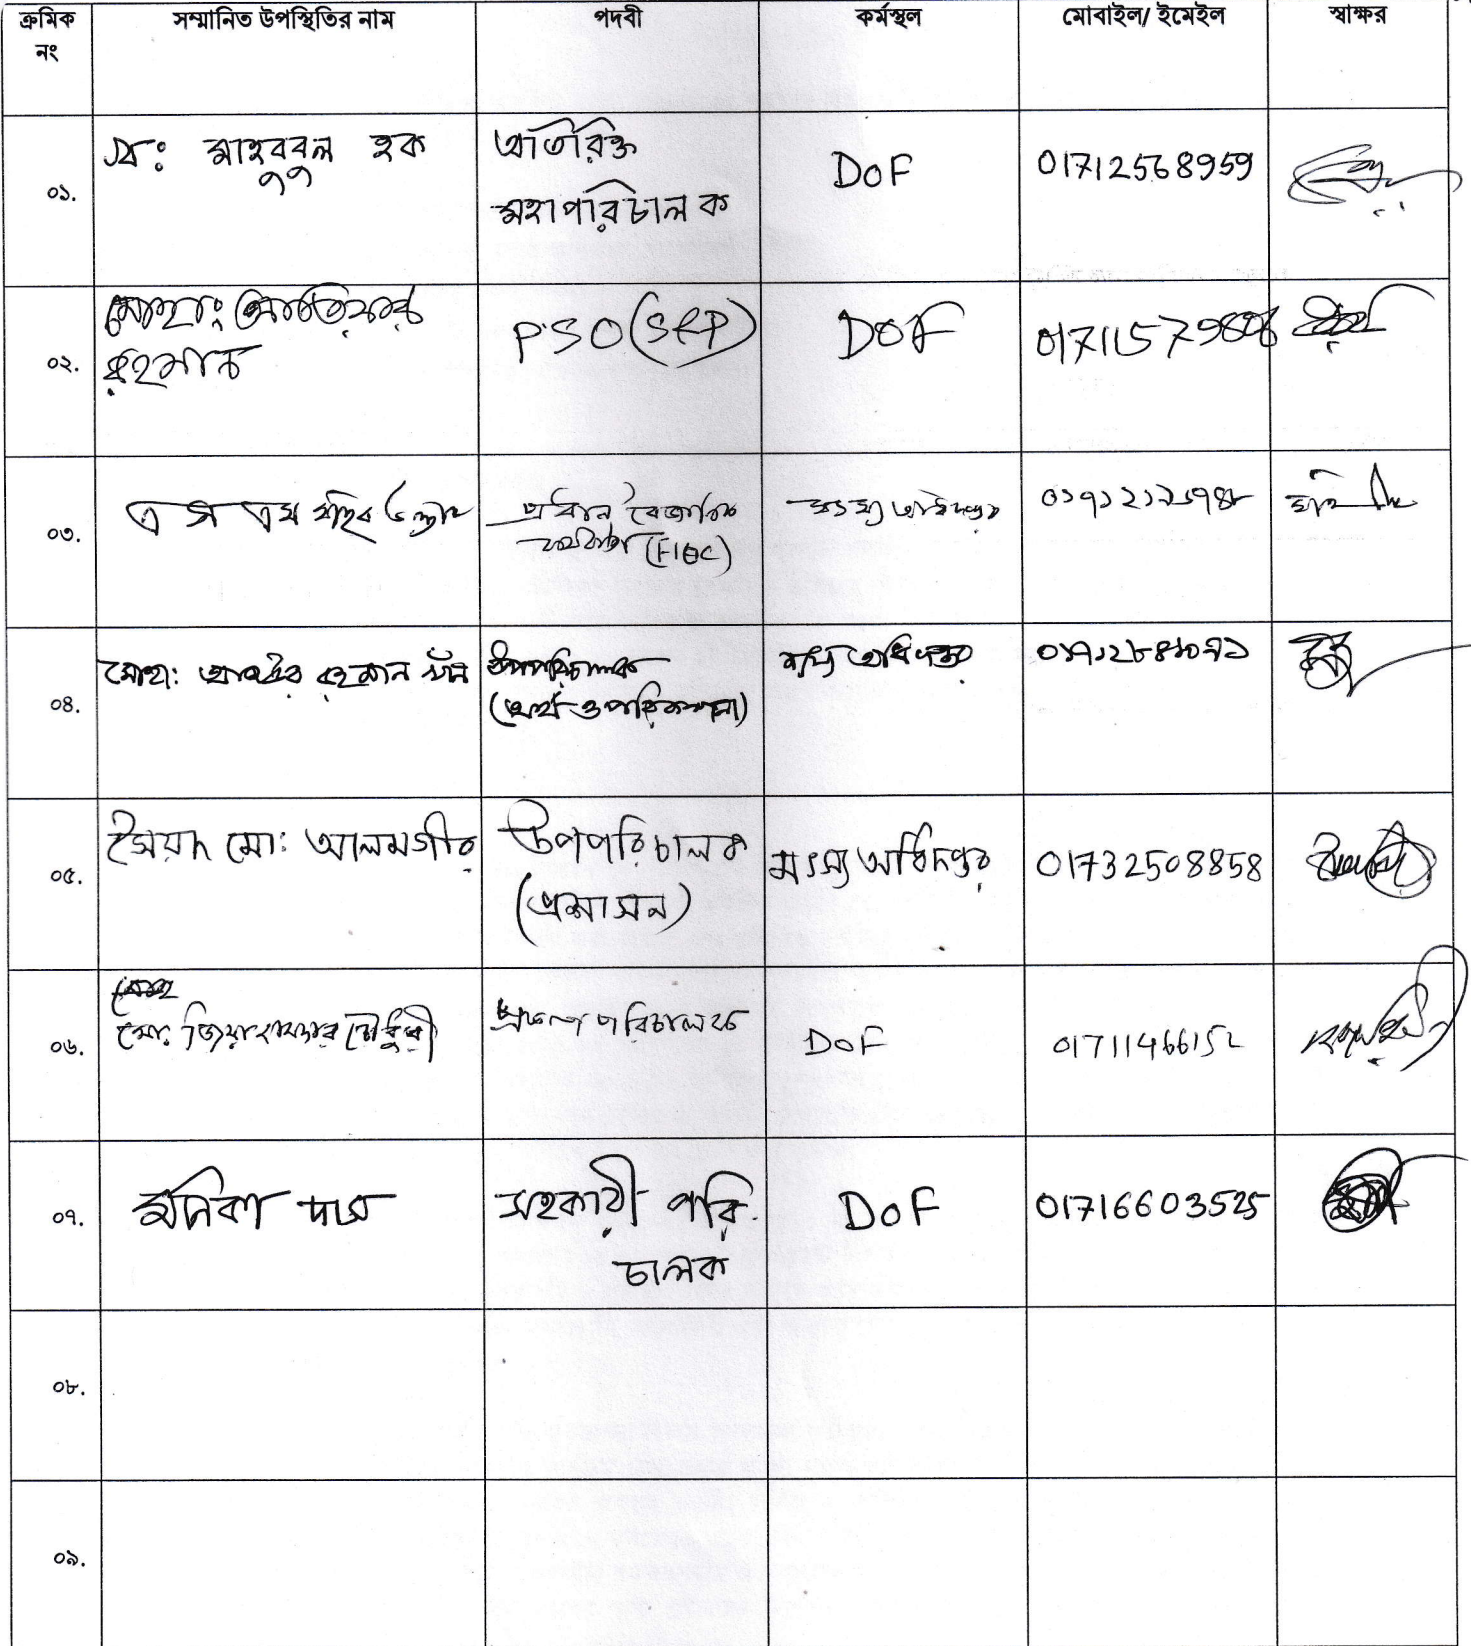 ক্রমিক নং সম্মানিত উপস্থিতির নাম পদবী কর্মস্থল মোবাইল/ ইমেইল স্বাক্ষর
০১. মাহবুবুল হক অতিরিক্ত মহাপরিচালক DoF 01712568959
০২. মোহাঃ আতিয়ার রহমান PSO (SRP) DOF
০৩. এস এম প্রধান বৈজ্ঞানিক কর্মকর্তা মৎস্য অধিদপ্তর
০৪. মোহা: রহমান উপপরিচালক (অর্থ ও পরিকল্পনা) মৎস্য অধিদপ্তর
০৫. সৈয়দ মো: আলমগীর উপপরিচালক (প্রশাসন) মৎস্য অধিদপ্তর 01732508858
০৬. মো: জিয়া হায়দার চৌধুরী প্রকল্প পরিচালক DoF 01711466152
০৭. মনিকা দাস সহকারী পরিচালক DoF 01716603525
০৮.
০৯.